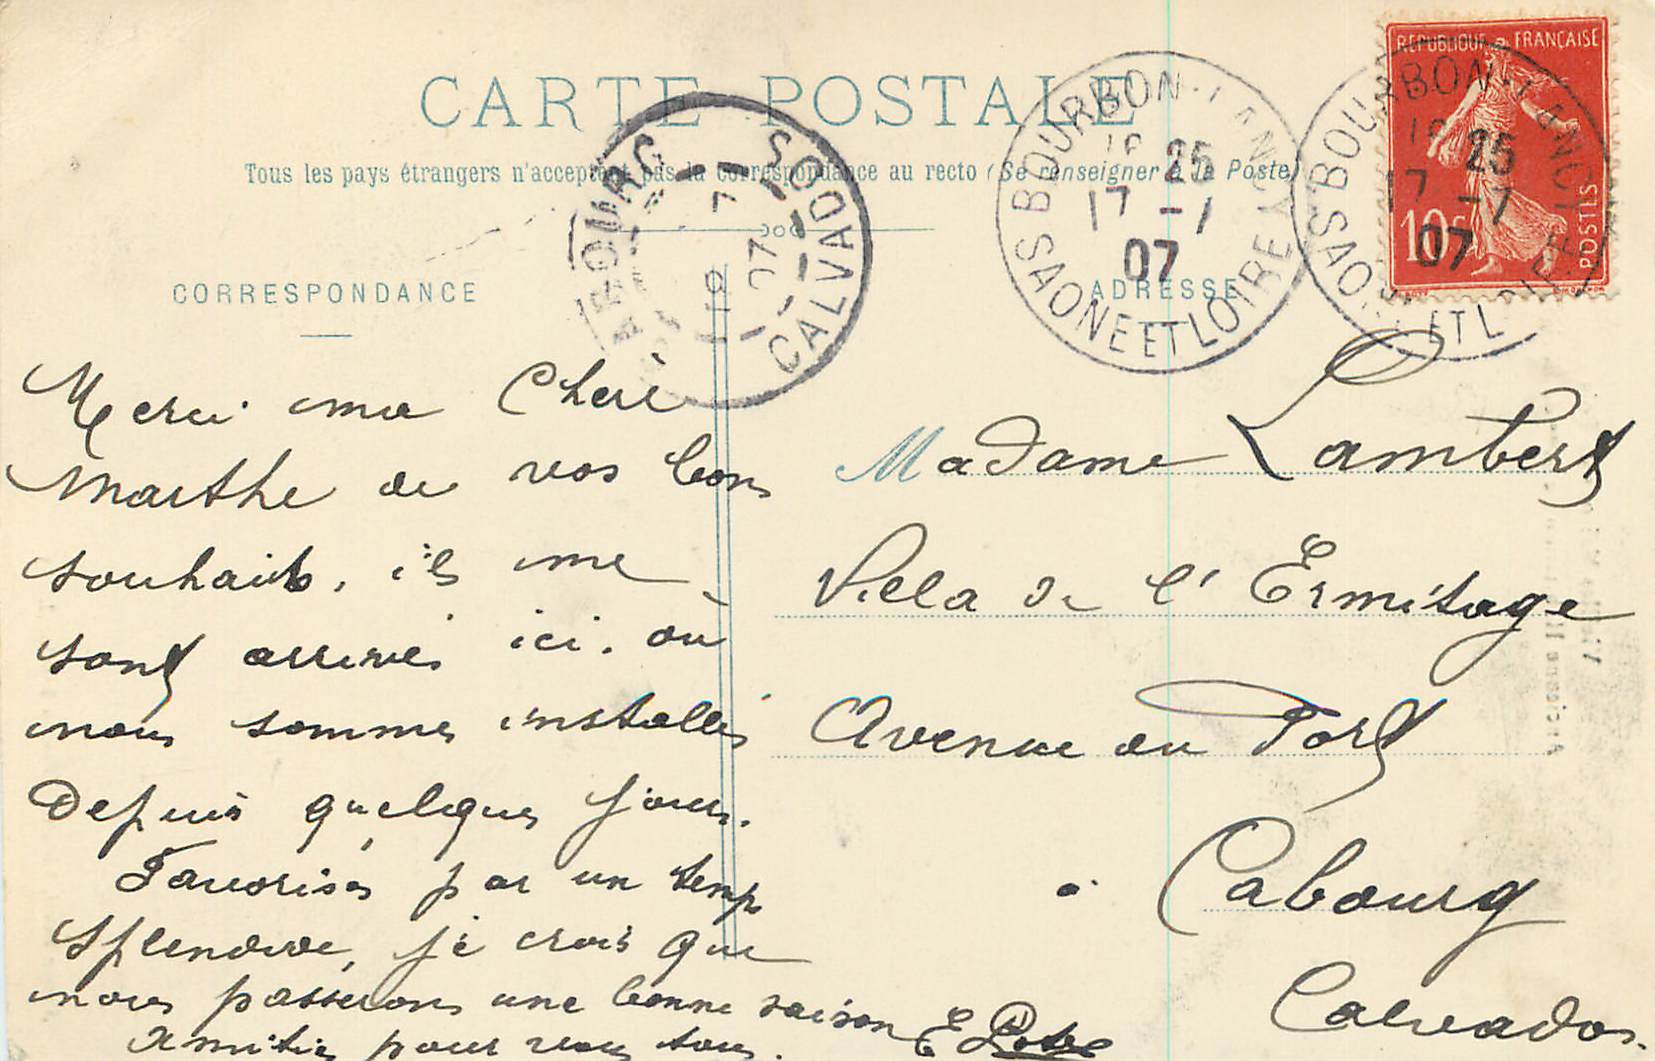 CARTE POSTALE
Tous les pays étrangers n'acceptent pas la correspondance au recto (Se renseigner à la Poste)
CORRESPONDANCE
ADRESSE
REPUBLIQUE FRANÇAISE
10c
POSTES
BOURBON-LANCY
SAONE ET LOIRE
25
17 -7
07
BOURBON-LANCY
25
17 -7
07
CABOURG
CALVADOS
07
Merci ma Chere
Marthe de vos bons
souhaits, ils me
sont arrivés ici, où
nous sommes installés
Depuis quelques jours.
Favorisés par un temps
splendide, je crois que
nous passerons une bonne saison
Amitiés pour vous tous.
Madame Lambert
Villa de l'Ermitage
Avenue du Port
à Cabourg
Calvados.